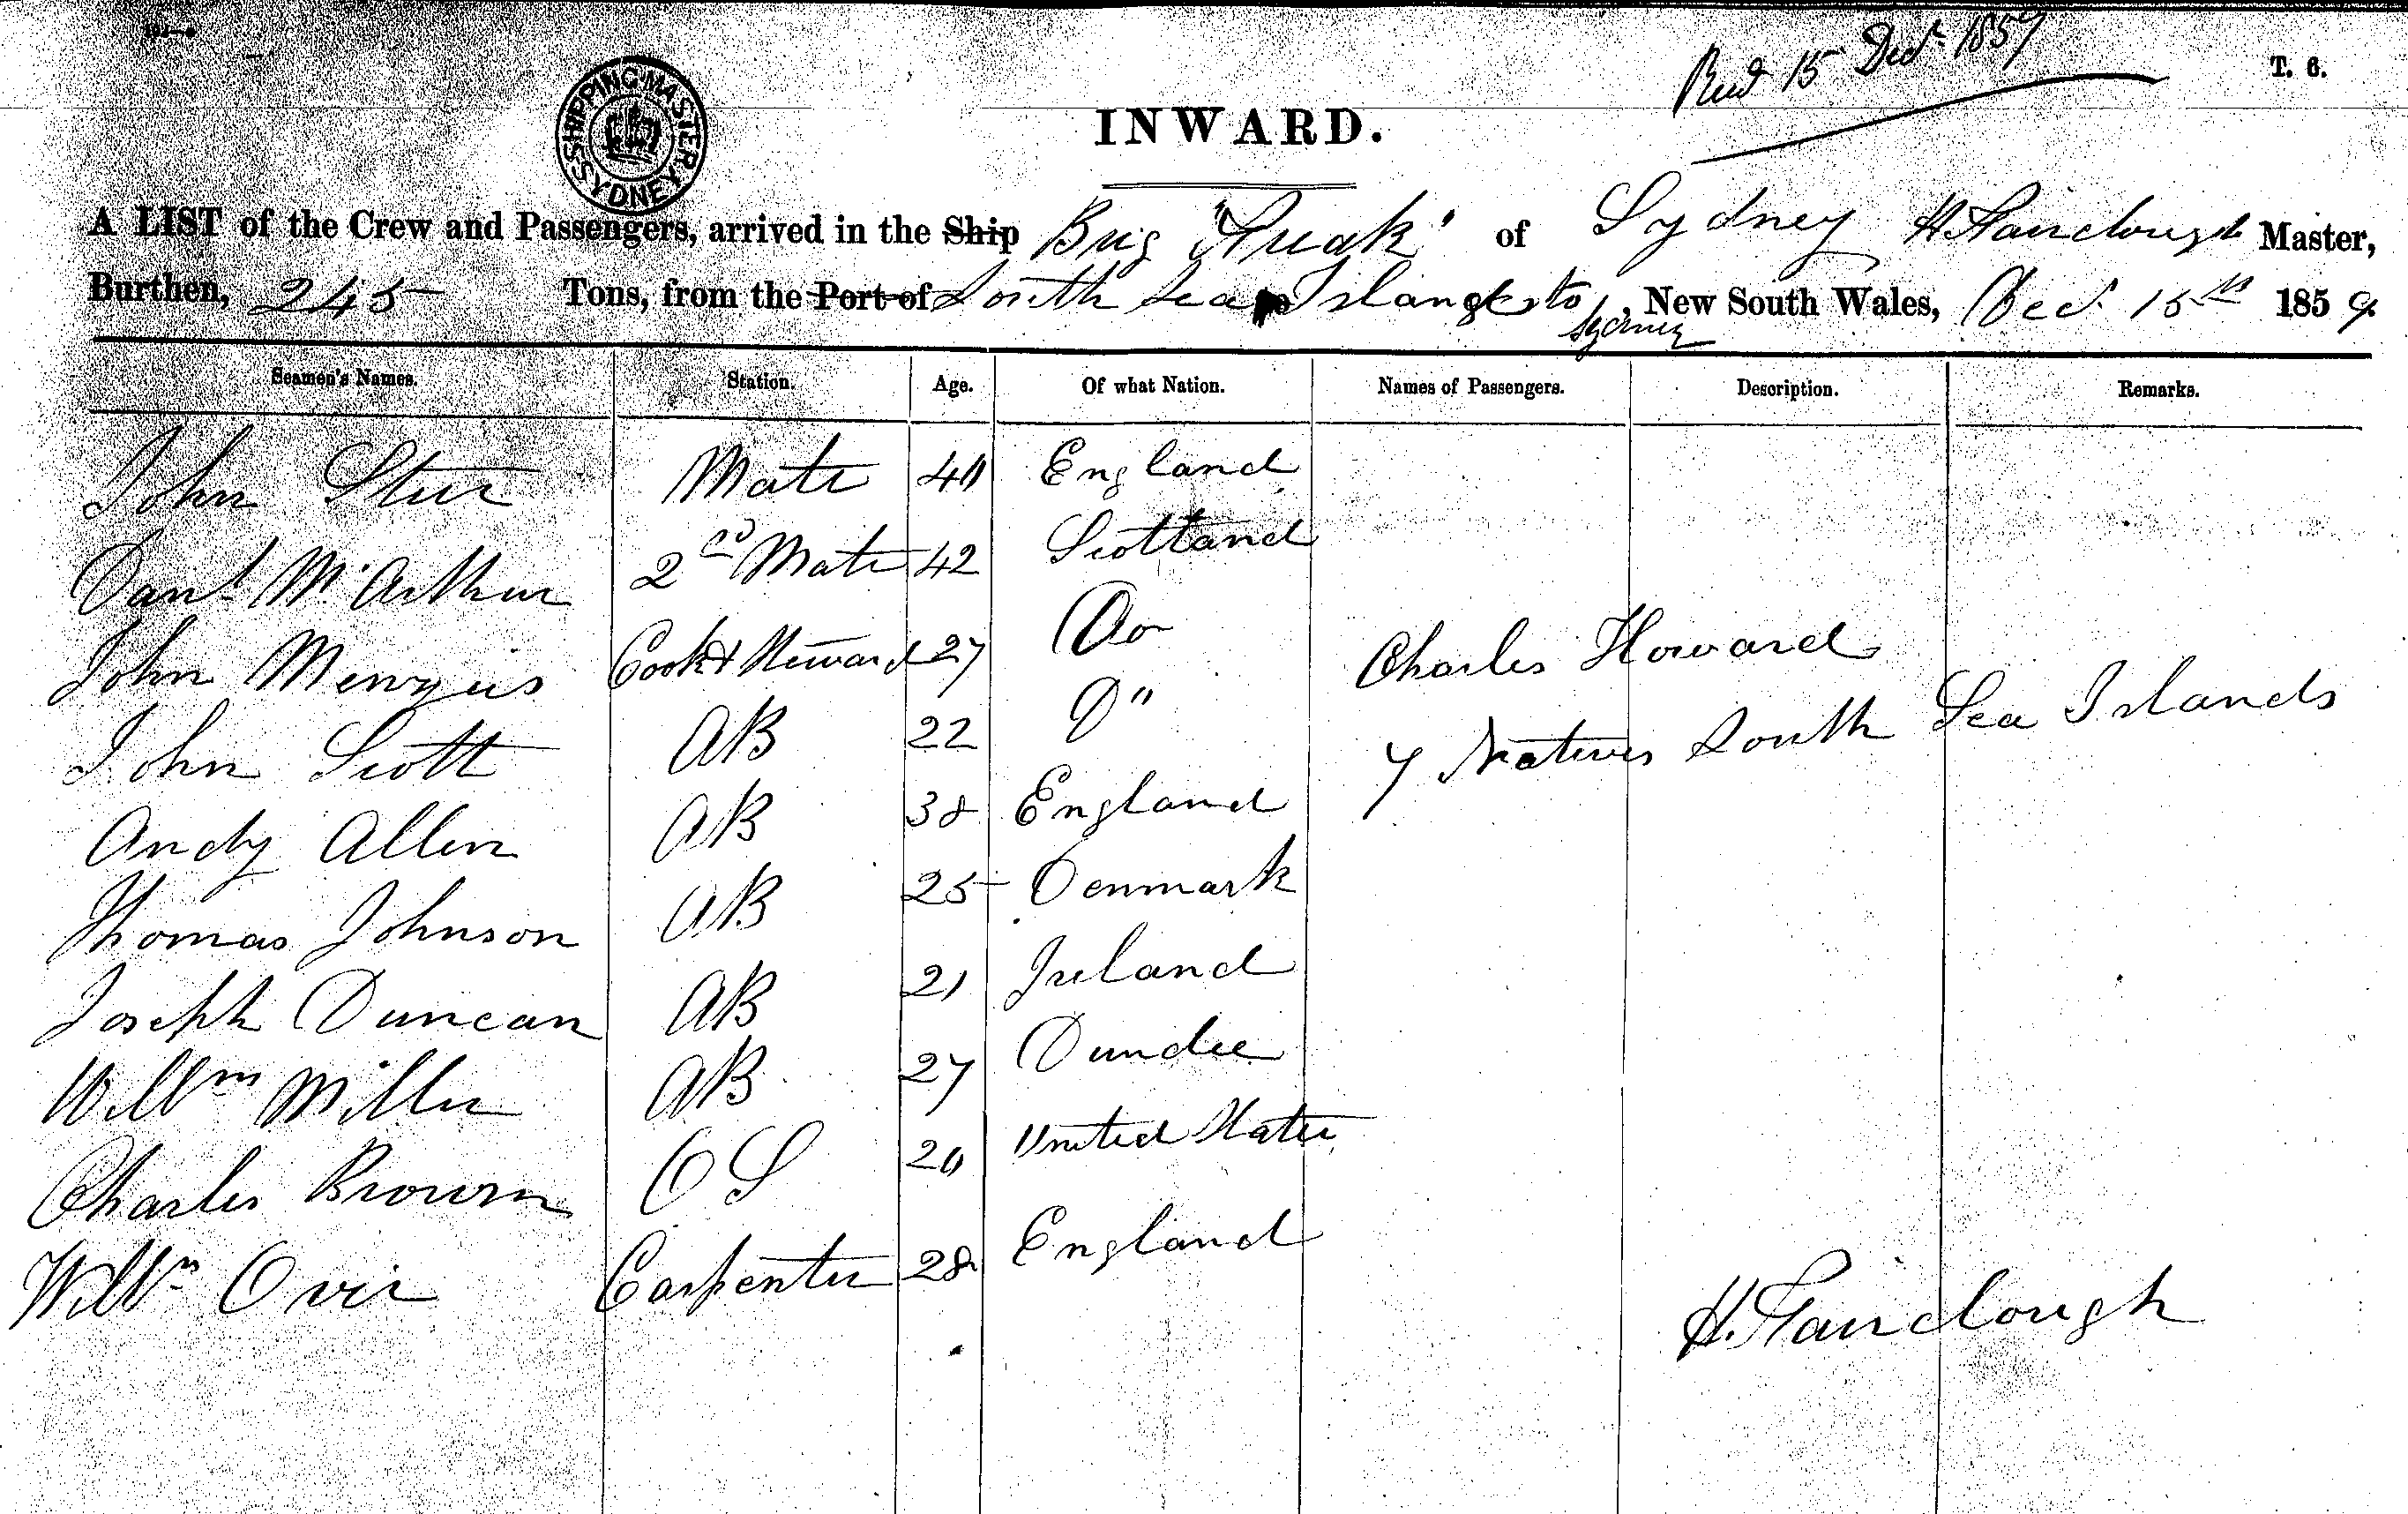 Recd 15 Decr 1859
T. 6.
SHIPPING MASTER SYDNEY
INWARD.
A LIST of the Crew and Passengers, arrived in the Ship Brig "Freak" of Sydney H Fairclough Master,
Burthen, 245 Tons, from the Port of South Sea Islands to Sydney, New South Wales, Dec 15th 1859
Seamen's Names. Station. Age. Of what Nation. Names of Passengers. Description. Remarks.
John Mate 40 England
Danl McArthur 2nd Mate 42 Scotland
John Menzies Cook & Steward 27 Do Charles Howard
John Scott AB 22 Do 7 Natives South Sea Islands
Andy Allen AB 38 England
Thomas Johnson AB 25 Denmark
Joseph Duncan AB 21 Ireland
Willm Miller AB 27 Dundee
Charles Brown OS 20 United States
Willm Carpenter 28 England
H. Fairclough